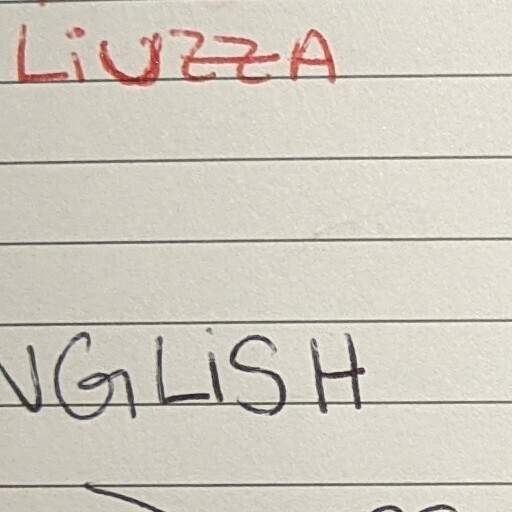 LiUZZA
NGLiSH